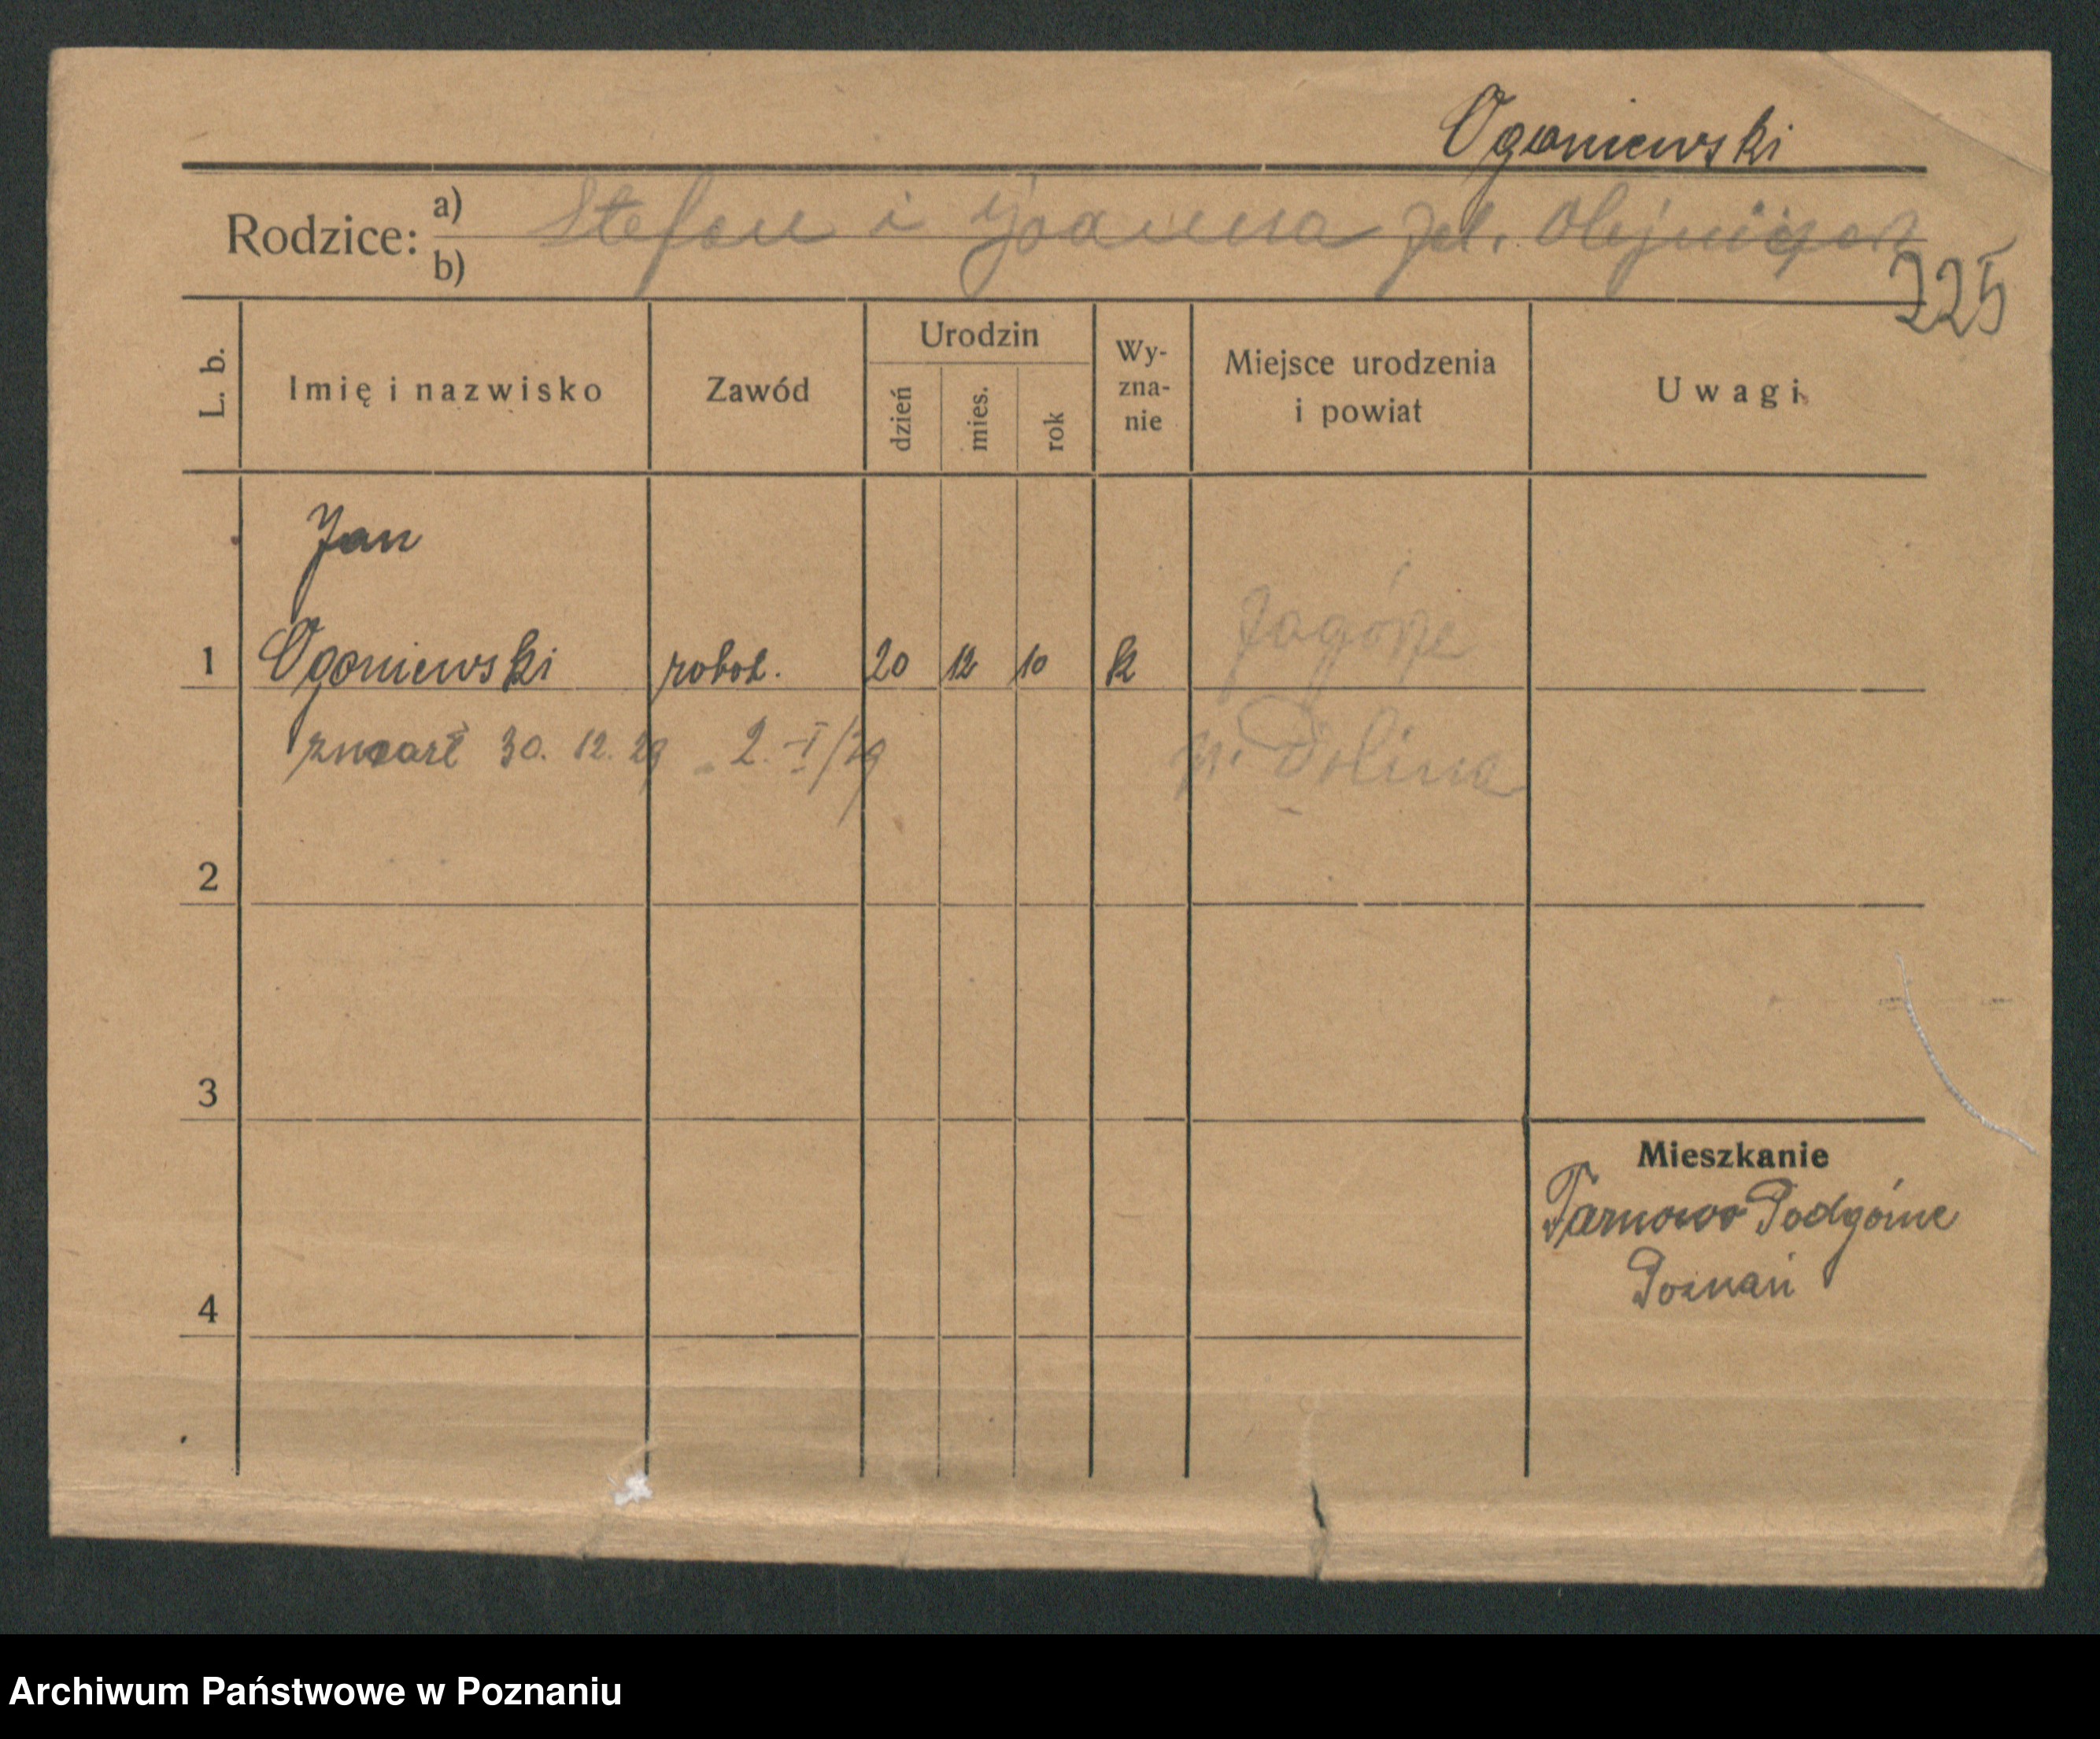 Ogoniewski
Rodzice: a) b) Stefan i Joanna zd.
225
L. b.
Imię i nazwisko
Zawód
Urodzin
dzień
mies.
rok
Wy-
zna-
nie
Miejsce urodzenia
i powiat
Uwagi
Jan
1 Ogoniewski robot. 20 12 10 k
Zagórze
zmarł 30. 12. 29 - 2. I/29
p. Dolina
2
3
Mieszkanie
Tarnowo Podgórne
Poznań
4
Archiwum Państwowe w Poznaniu